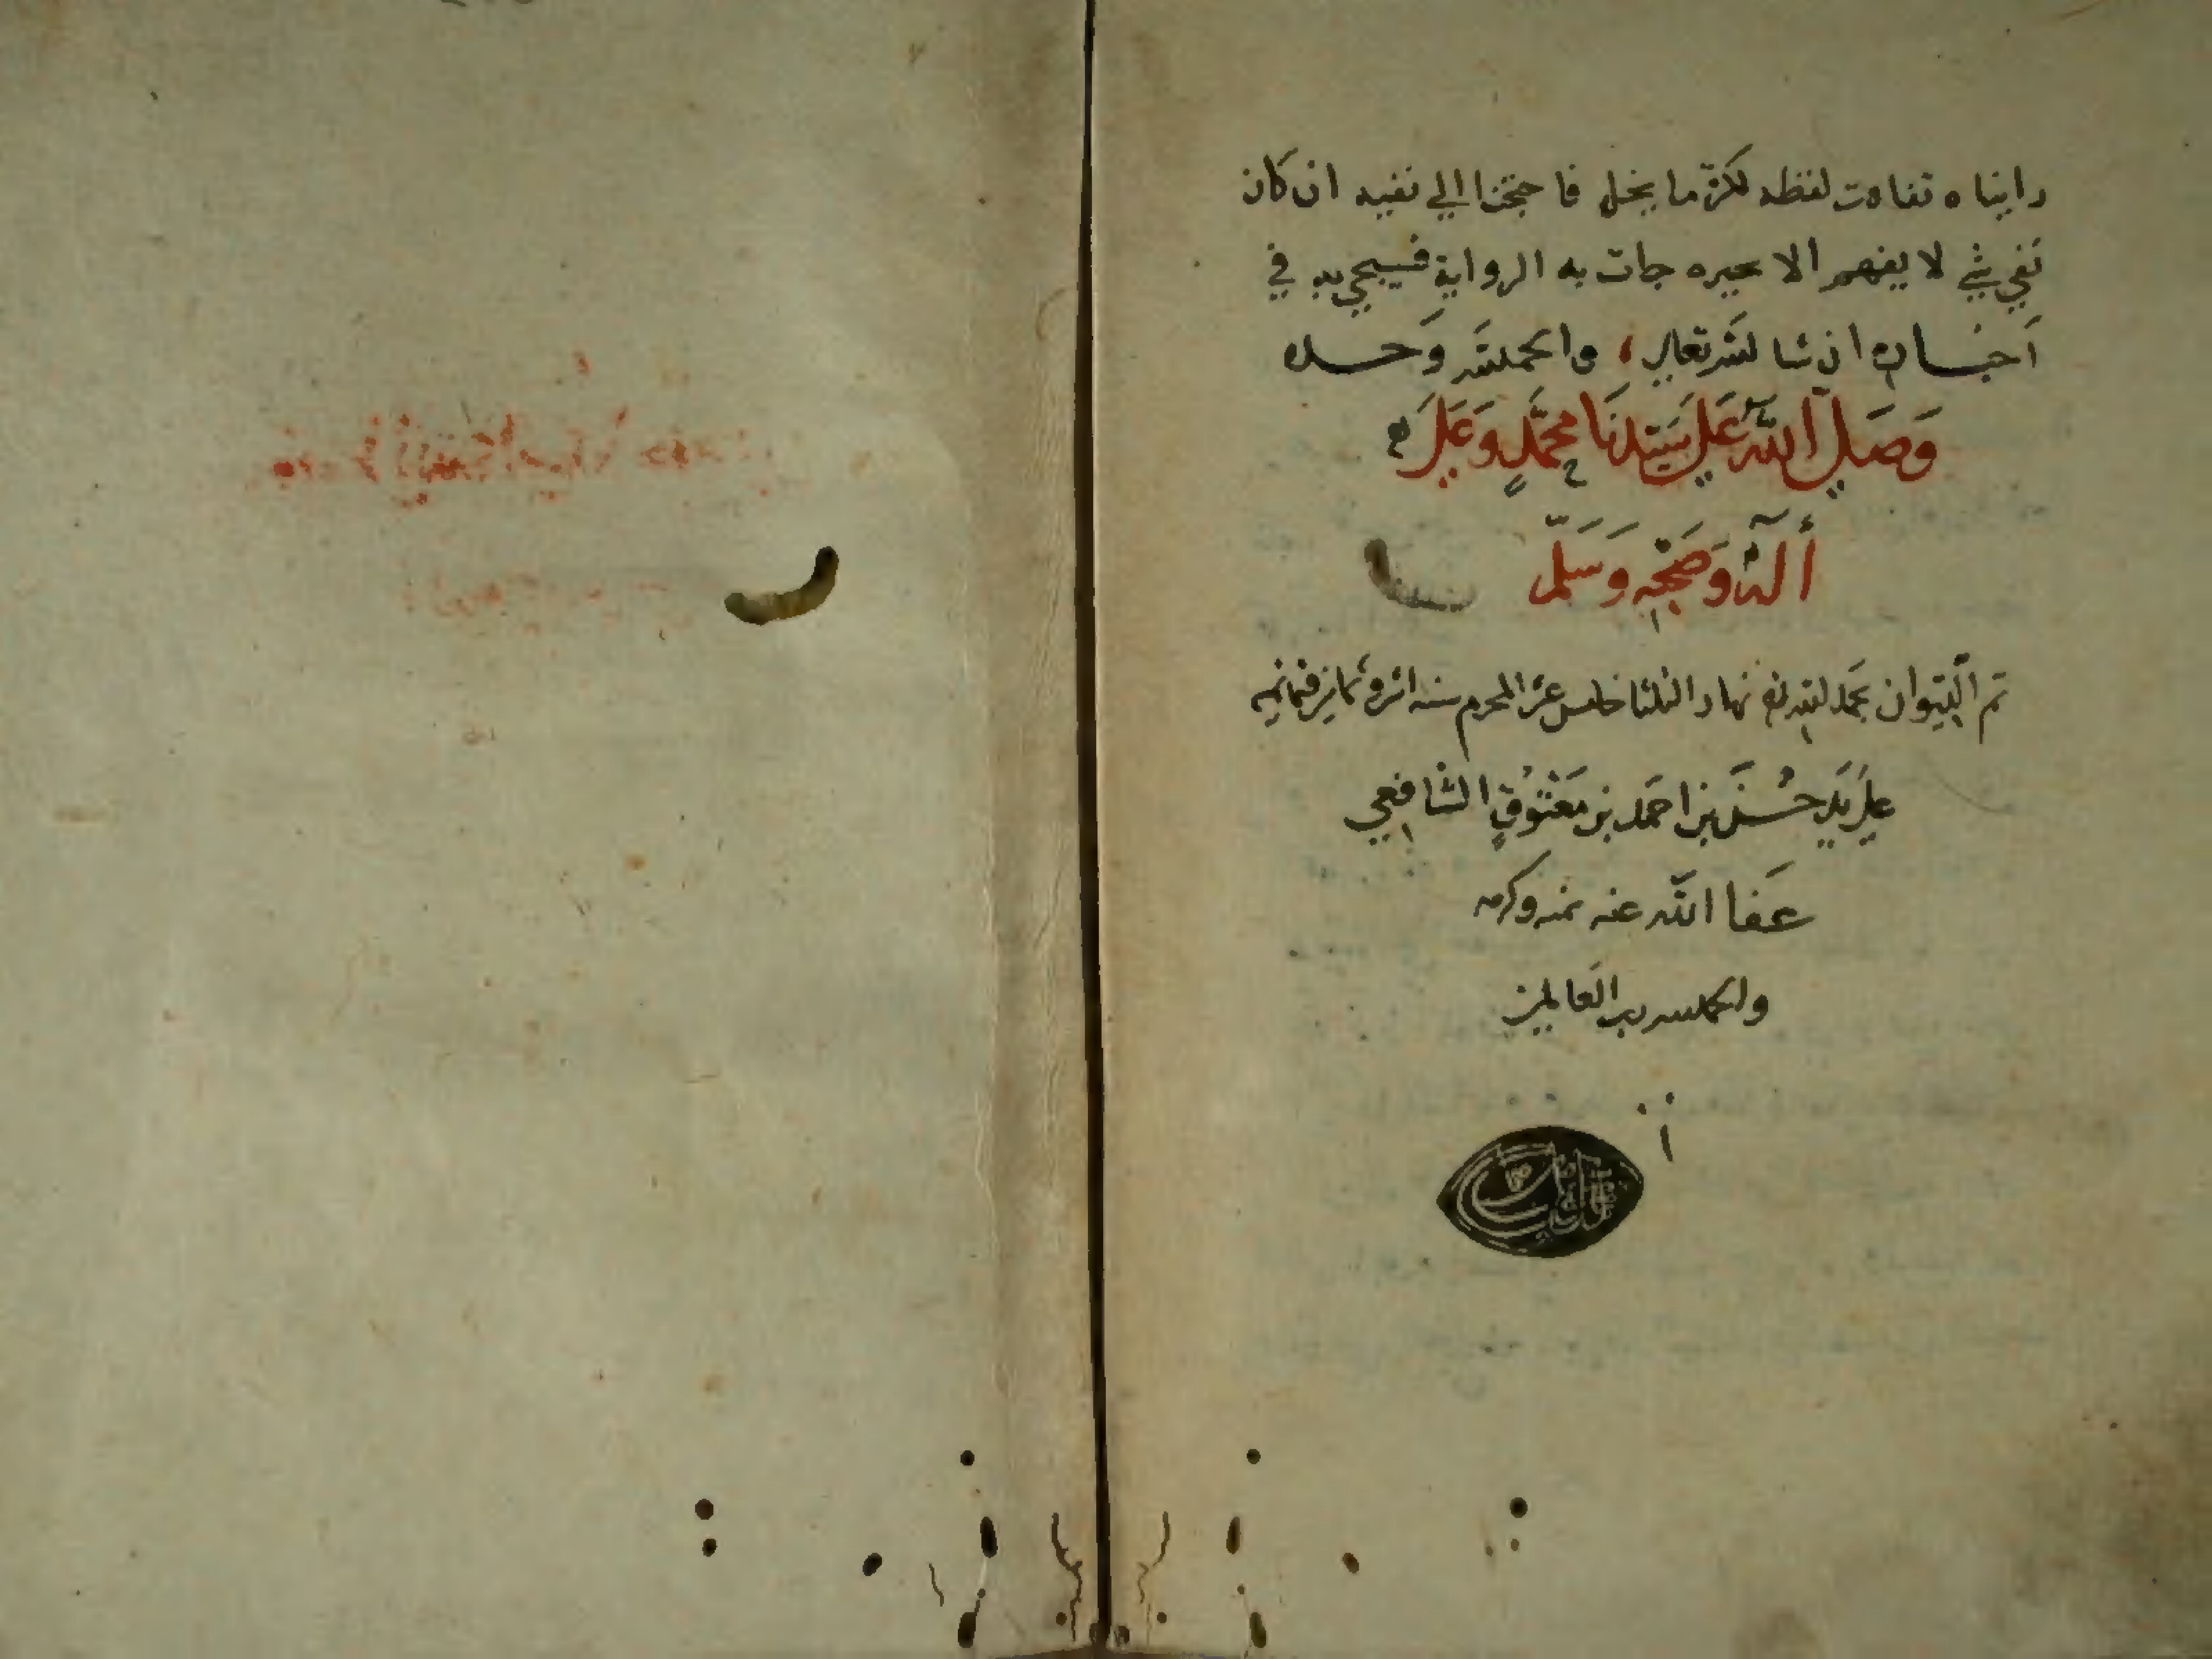 راينا ه تفاوت لفظه لكن ما يخل فاحتجنا الي نفيه ان كان
نفي شي لا يفهم الا جات به الرواية فسيجي به في
ان شا الله تعالي والحمد لله وحده
وَصَلي اللهُ عَلَي سَيّدنَا محمَّدٍ وَعَلَي
أله وَصَحْبِه وَسَلمّ
تم الدّيوان بحَمد الله نهار الثلثا خامس عشر المحرم سنه
عَلي يَد حسَن بن احمَد بن مَعْتُوقٍ الشافِعي
عَفا الله عنه بمنه وكرمه
والحمد لله رب العَالمين